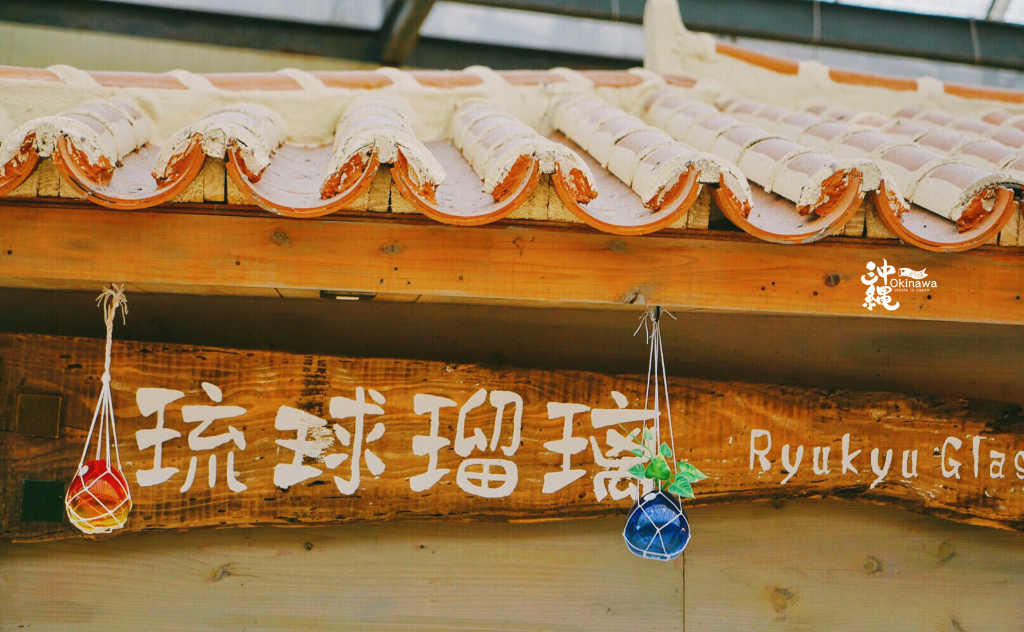 沖縄
Okinawa
琉球瑠璃 Ryukyu Glas